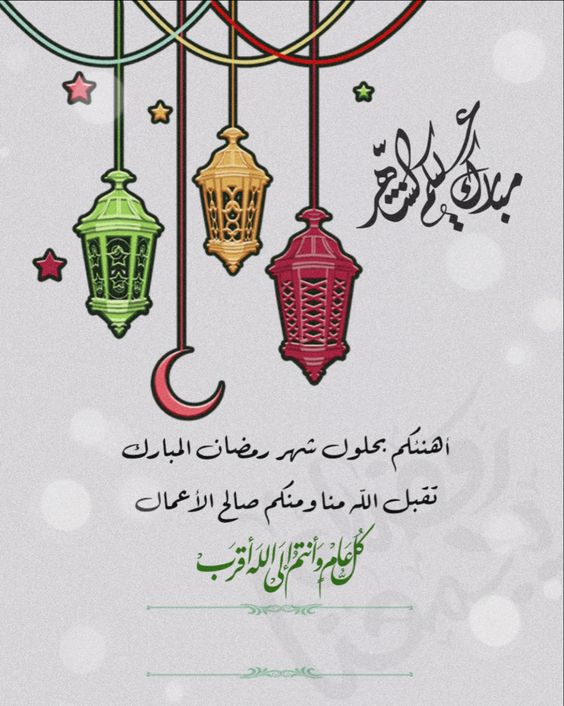 مبارك عليكم الشهر
أهنئكم بحلول شهر رمضان المبارك
تقبل الله منا ومنكم صالح الأعمال
كُل عَام وَأنتُم إلَى اللَه أقرَب